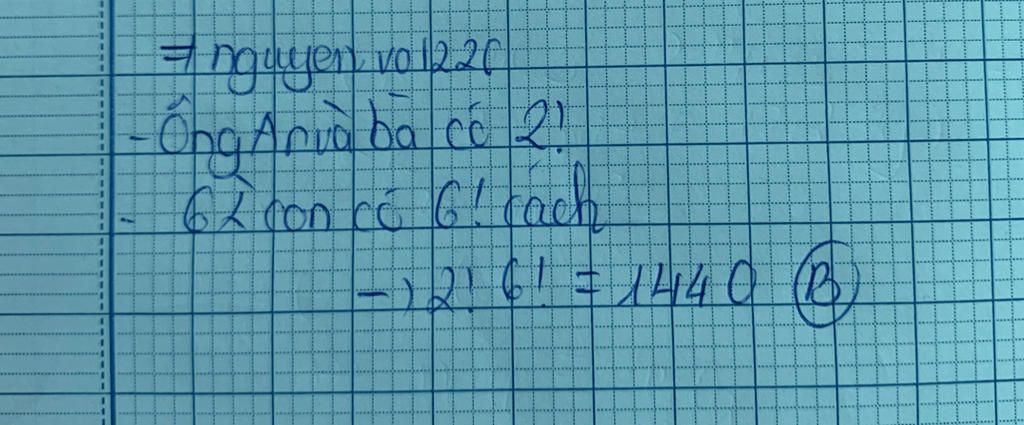 nguyen vo 1220
- Ông An và bà có 2!
- 6 con có 6! cách
→ 2! 6! = 1440 (B)